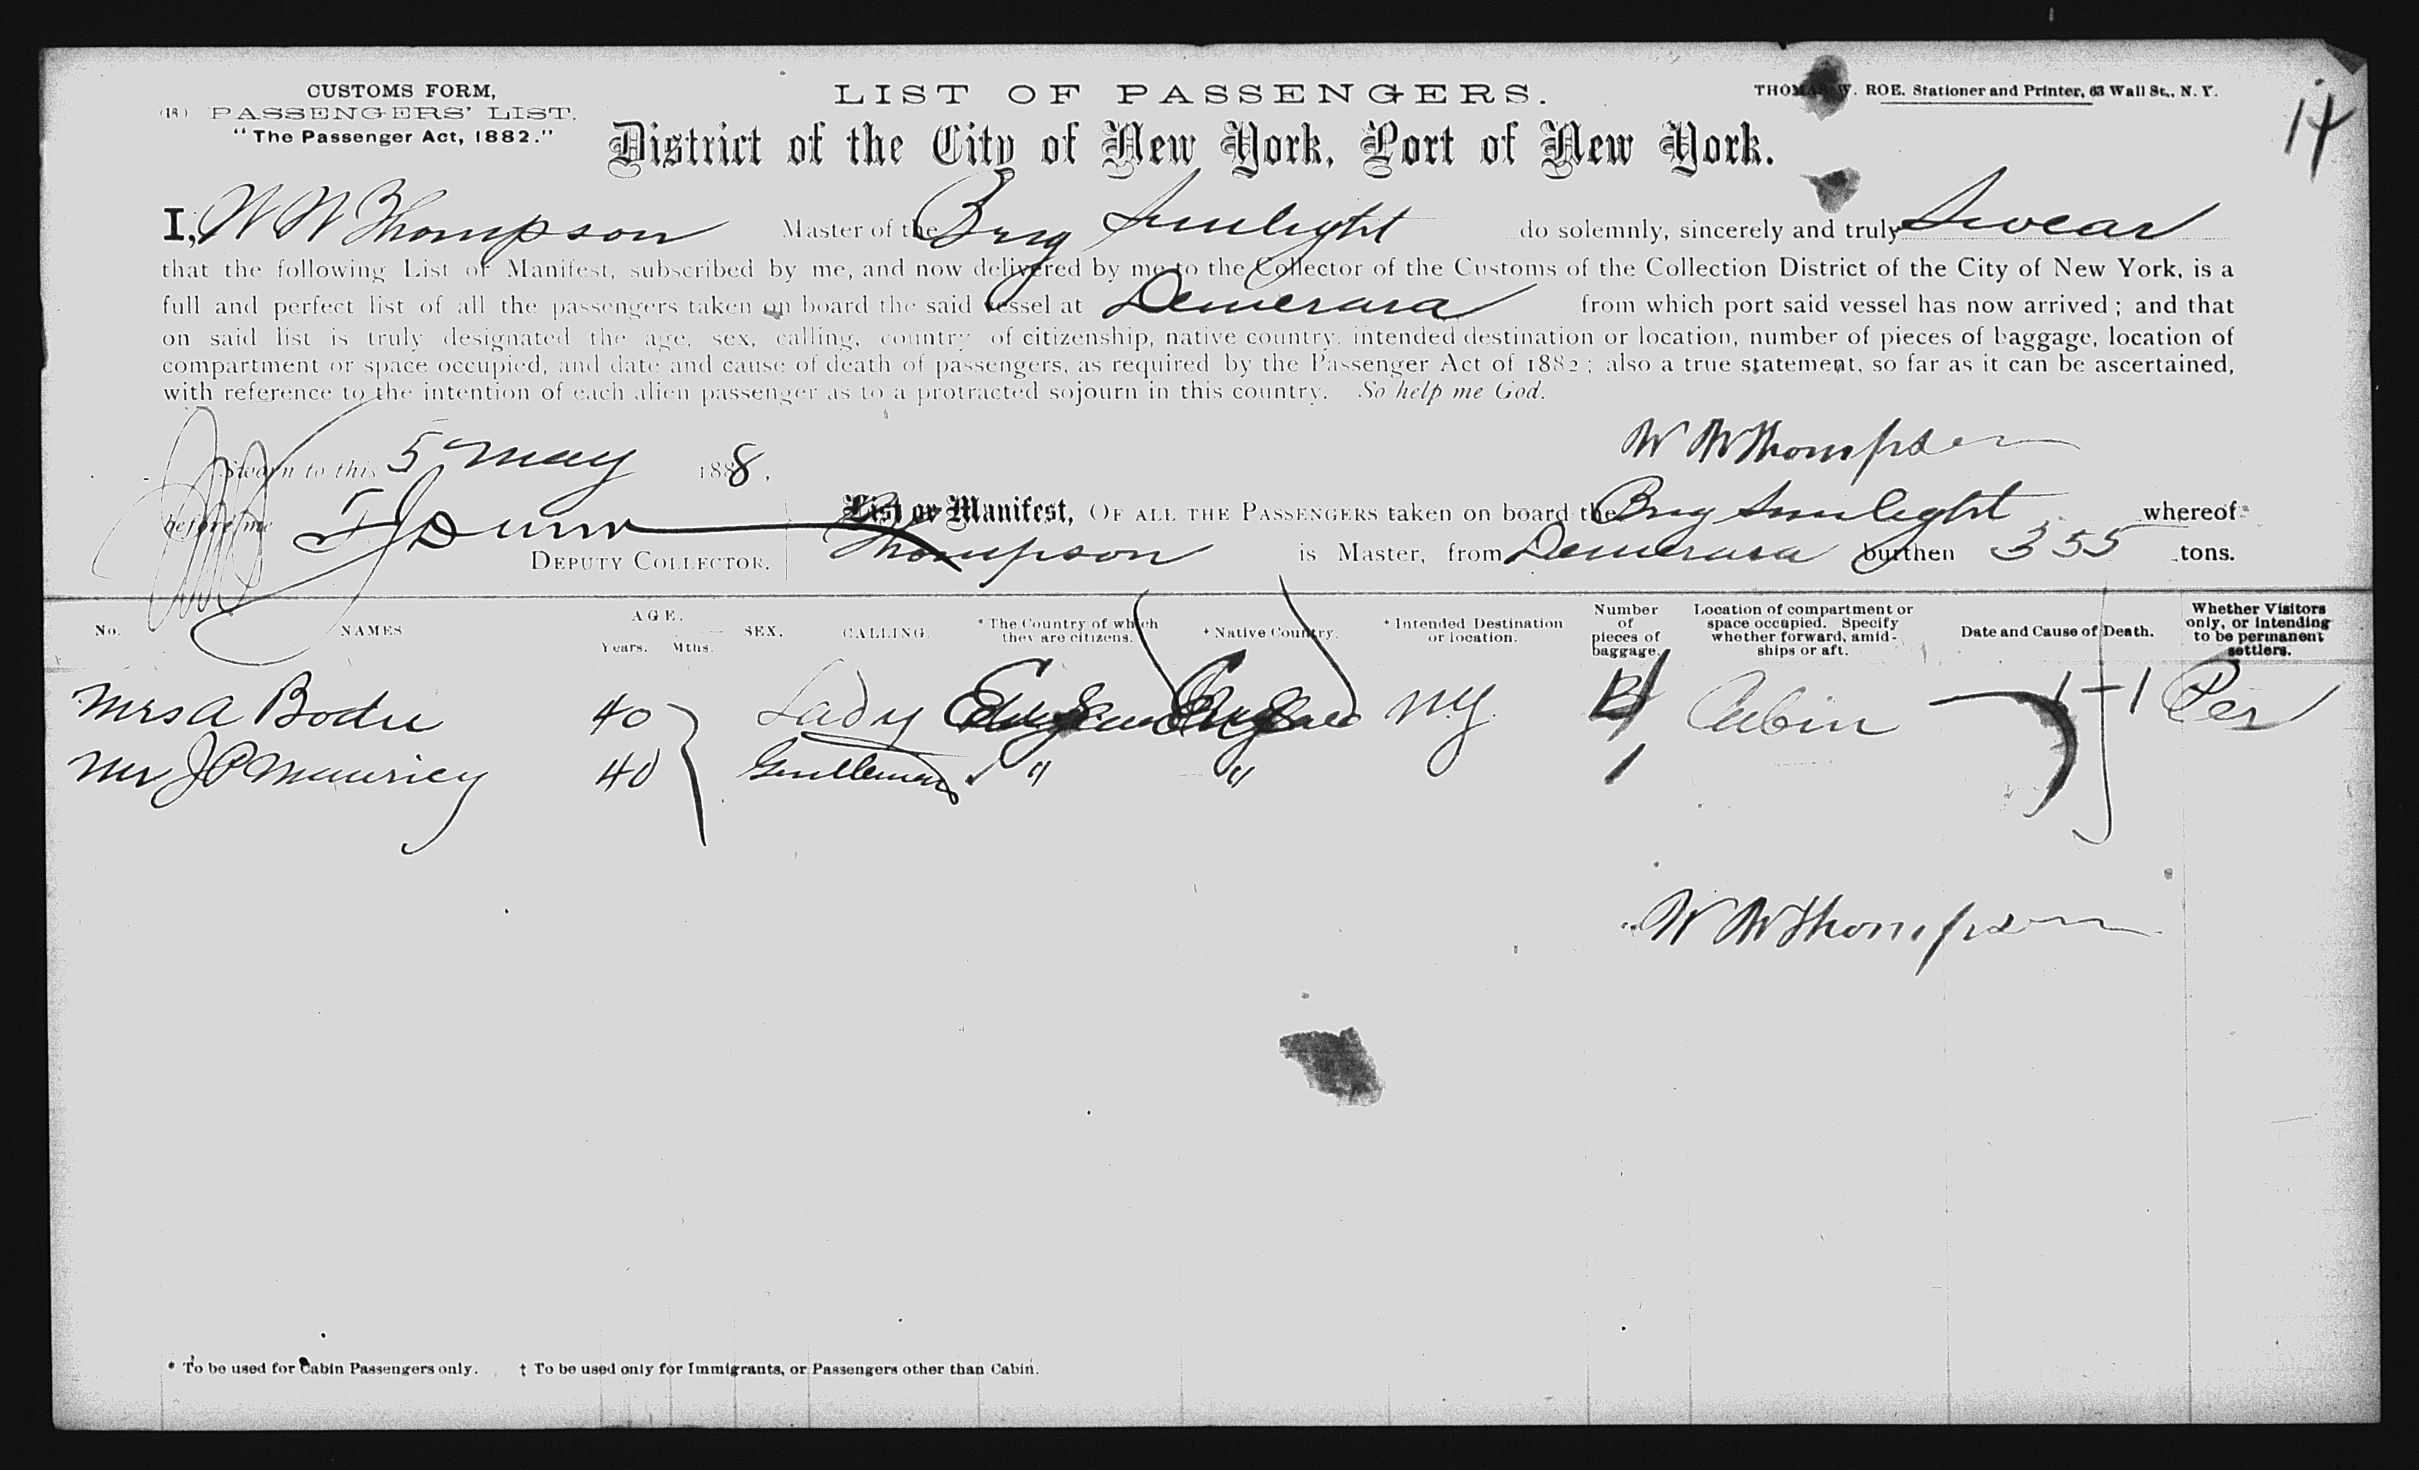 CUSTOMS FORM,
(18) PASSENGERS' LIST.
"The Passenger Act, 1882."
LIST OF PASSENGERS.
THOMAS W. ROE. Stationer and Printer, 63 Wall St., N. Y.
District of the City of New York, Port of New York.
I, W W Thompson Master of the Brig Sunlight do solemnly, sincerely and truly Swear
that the following List or Manifest, subscribed by me, and now delivered by me to the Collector of the Customs of the Collection District of the City of New York, is a
full and perfect list of all the passengers taken on board the said vessel at Demerara from which port said vessel has now arrived; and that
on said list is truly designated the age, sex, calling, country of citizenship, native country, intended destination or location, number of pieces of baggage, location of
compartment or space occupied, and date and cause of death of passengers, as required by the Passenger Act of 1882; also a true statement, so far as it can be ascertained,
with reference to the intention of each alien passenger as to a protracted sojourn in this country. So help me God.
W W Thompson
Sworn to this 5 May 1888,
before me Dunn
DEPUTY COLLECTOR.
List or Manifest, OF ALL THE PASSENGERS taken on board the Brig Sunlight whereof
Thompson is Master, from Demerara burthen 355 tons.
No. NAMES AGE. Years. Mths. SEX. CALLING. * The Country of which they are citizens. + Native Country. + Intended Destination or location. Number of pieces of baggage. Location of compartment or space occupied. Specify whether forward, amidships or aft. Date and Cause of Death. Whether Visitors only, or intending to be permanent settlers.
Mrs A Bodie 40 Lady England England N.Y. Cabin 1-1 Per
Mr J P 40 Gentleman " " 1
W W Thompson
* To be used for Cabin Passengers only. † To be used only for Immigrants, or Passengers other than Cabin.